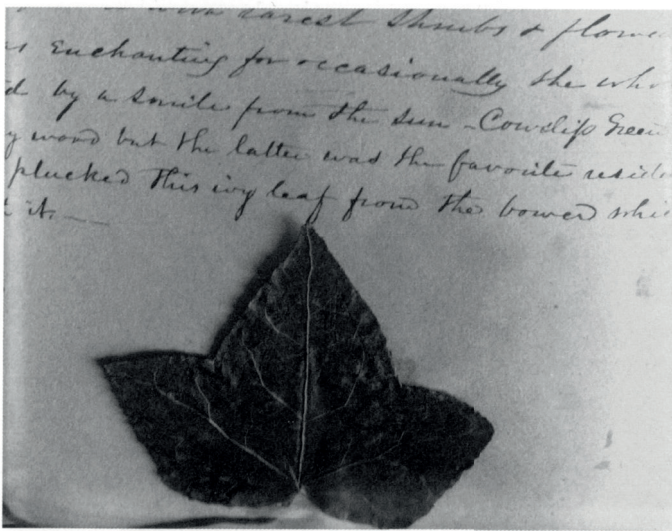 with rarest shrubs & flowe
Enchanting for occasionally the who
d by a smile from the sun - Cowslip Green
y wood but the latter was the favorite resid
plucked this ivy leaf from the bower whi
it. —